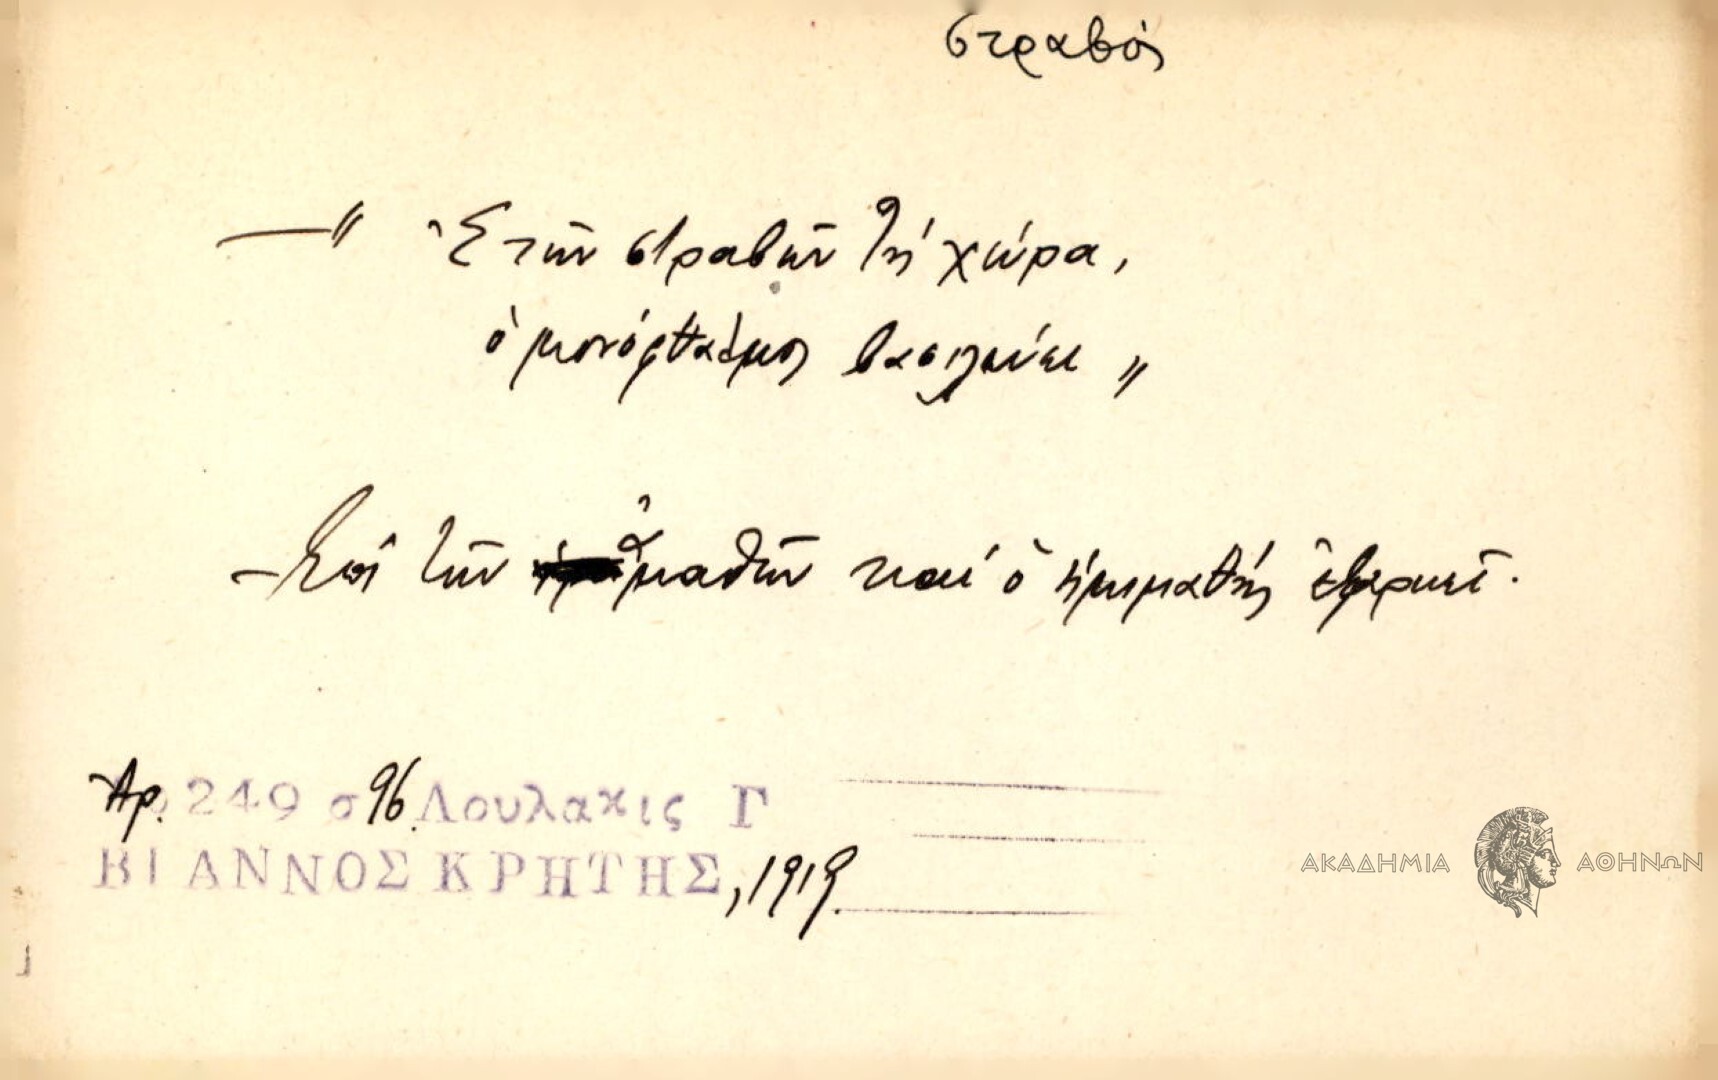 στραβός
—" Στῶν στραβῶν τή χώρα,
ὁ μονόφθαλμος βασιλεύει "
— Ἐπί τῶν ἀμαθῶν καί ὁ ἡμιμαθής ἐπαρκεῖ.
Ἀρ. 249 σ 96. Λουλακις Γ
ΒΙΑΝΝΟΣ ΚΡΗΤΗΣ, 1919.
ΑΚΑΔΗΜΙΑ ΑΘΗΝΩΝ